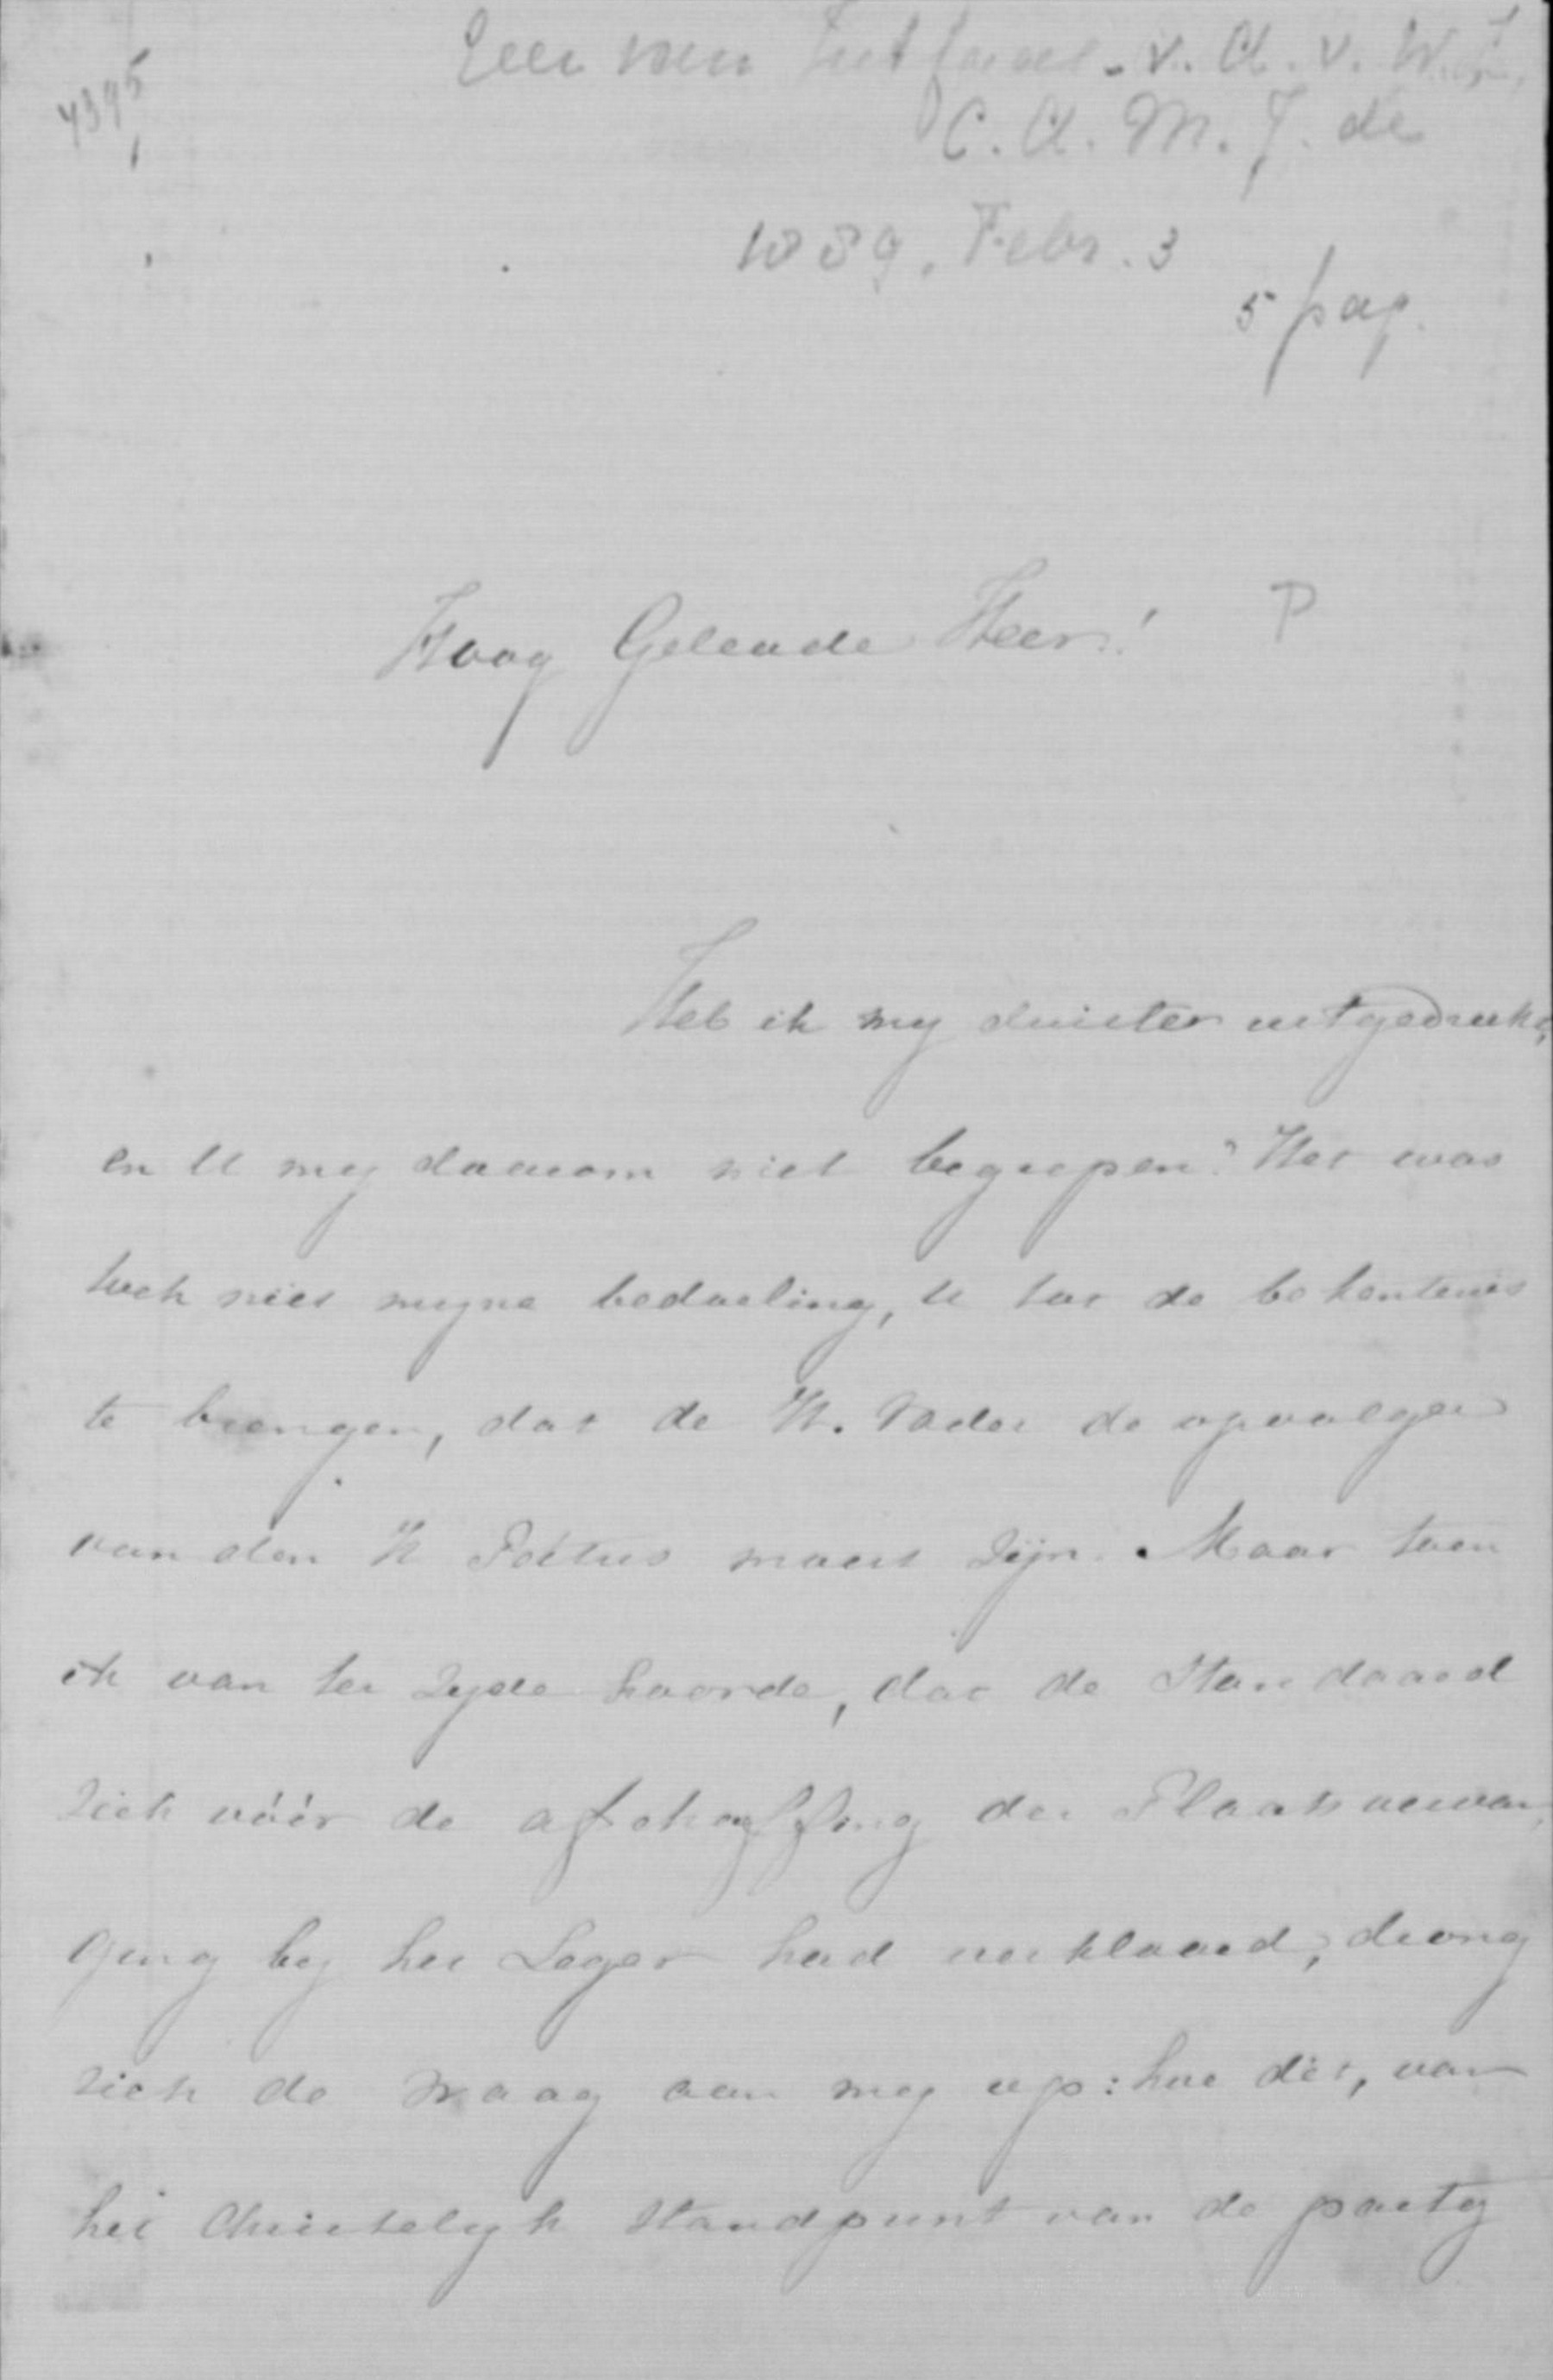 4395
v. A. v. W
C. A. M. J. de
1889. Febr. 3
5 pag.
Hoog Geleerde Heer! P
Heb ik my duister uitgedrukt,
en U my daarom niet begrepen? Het was
toch niet myne bedoeling, U tot de bekentenis
te brengen, dat de H. Vader de opvolger
van den H Petrus moest zijn. Maar toen
ik van ter zyde hoorde, dat de Standaard
zich vóór de afschaffing der Plaatsvervan
ging by het Leger had verklaard, drong
zich de vraag aan my op: hoe dit, van
het Christelyk Standpunt van de party